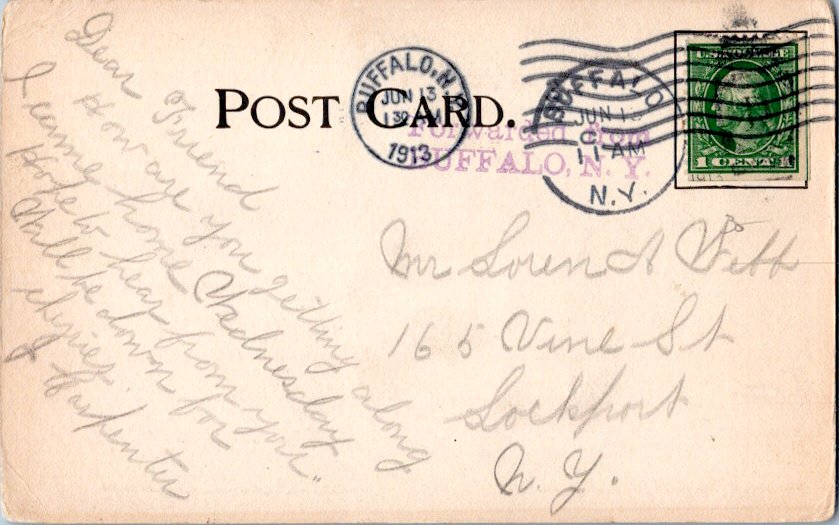 POST CARD.
BUFFALO, N.Y.
JUN 13
130 PM
1913
Forwarded from
BUFFALO, N. Y.
BUFFALO
JUN 13
11 AM
N.Y.
1 CENT 1
Dear Friend
How are you getting along
I came home Wednesday
Hope to hear from you.
Will be down for
Carpenter
Mr Loren A Webb
165 Vine St
Lockport
N. Y.